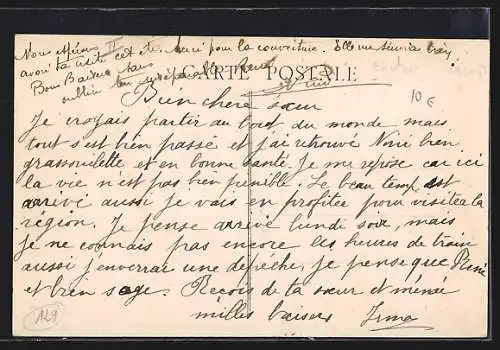 Nous
avoir ta visite cet été. Merci pour la couverture. Elle me
Bons Baisers sans
oublier
CARTE POSTALE
10 €
Bien chère sœur
Je croyais partir au bout du monde mais
tout s'est bien passé et j'ai retrouvé Nini bien
grassouillette et en bonne santé. Je me repose car ici
la vie n'est pas bien pénible. Le beau temps est
arrivé aussi je vais en profiter pour visiter la
région. Je pense arrivé lundi soir, mais
je ne connais pas encore les heures de train
aussi j'enverrai une dépêche, je pense que
et bien sage. Reçois de ta sœur et
milles baisers Irma
129